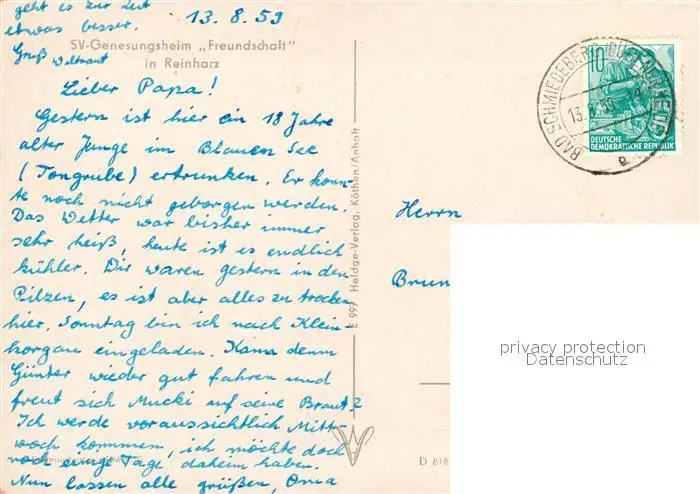 geht es zur Zeit
etwas besser.
Gruß Waltraut
13.8.59
SV-Genesungsheim „Freundschaft"
in Reinharz
Lieber Papa!
Gestern ist hier ein 18 Jahre
alter Junge im Blauen See
(Tongrube) ertrunken. Er konn-
te noch nicht geborgen werden.
Das Wetter war bisher immer
sehr heiß, heute ist es endlich
kühler. Wir waren gestern in den
Pilzen, es ist aber alles zu trocken
hier. Sonntag bin ich nach Klein-
korgau eingeladen. Kann denn
Günter wieder gut fahren und
freut sich Mucki auf seine Braut?
Ich werde voraussichtlich Mitt-
woch kommen, ich möchte doch
noch einige Tage daheim haben.
Nun lassen alle grüßen, Oma
E 997 Heldge-Verlag, Köthen/Anhalt
Herrn
Brun
D 818
BAD SCHMIEDEBERG
13.8.59
a
10
DEUTSCHE
DEMOKRATISCHE REPUBLIK
privacy protection
Datenschutz